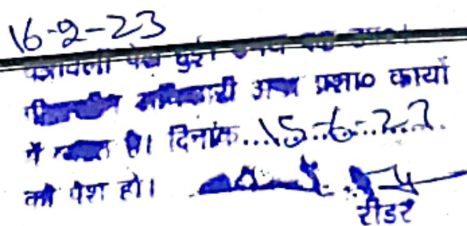 16-2-23
पत्रावली पेश हुई।
अधिकारी अन्य प्रशा० कार्यो
में व्यस्त है। दिनांक...15-6-23
को पेश हो।
रीडर